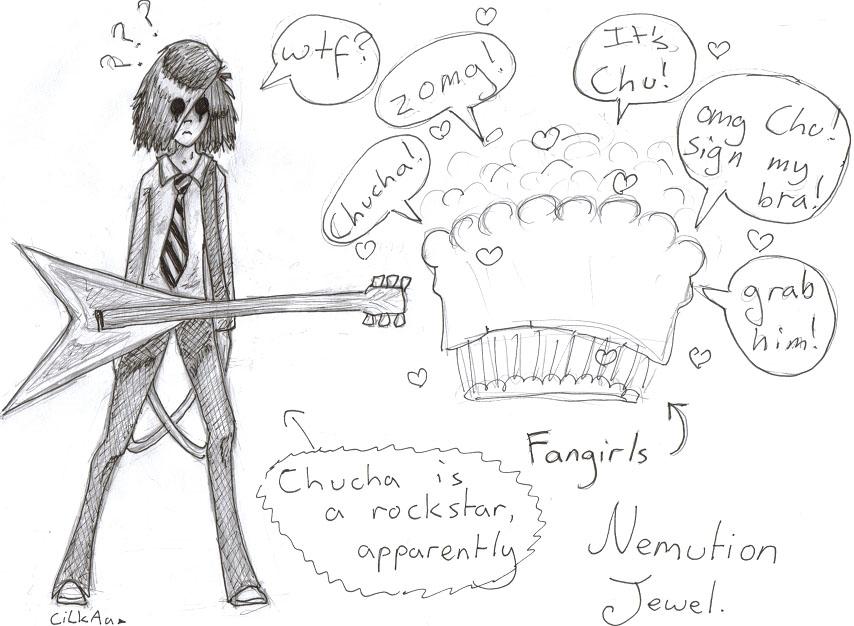 ? ? ?
wtf?
zomg!
It's
Chu!
omg Chu!
sign my
bra!
Chucha!
grab
him!
Fangirls
Chucha is
a rockstar,
apparently
Nemution
Jewel.
CiLkAa